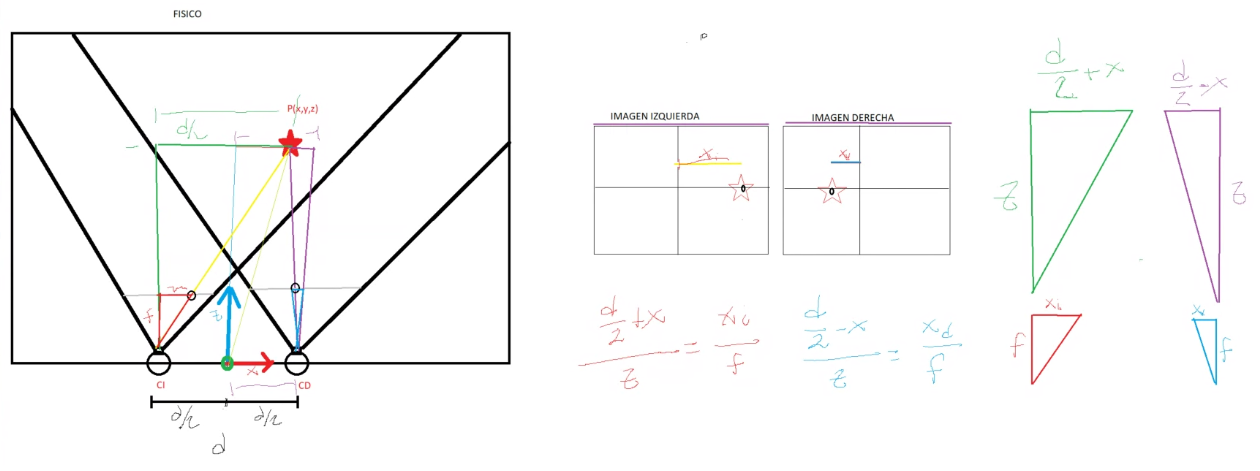 FISICO
P(x,y,z)
d/2
f
z
x
CI
CD
d/2
d/2
d
IMAGEN IZQUIERDA
IMAGEN DERECHA
xd
0
0
d/2 + x
d/2 - x
z
z
f
xd
f
d/2 + x / z = / f
d/2 - x / z = xd / f